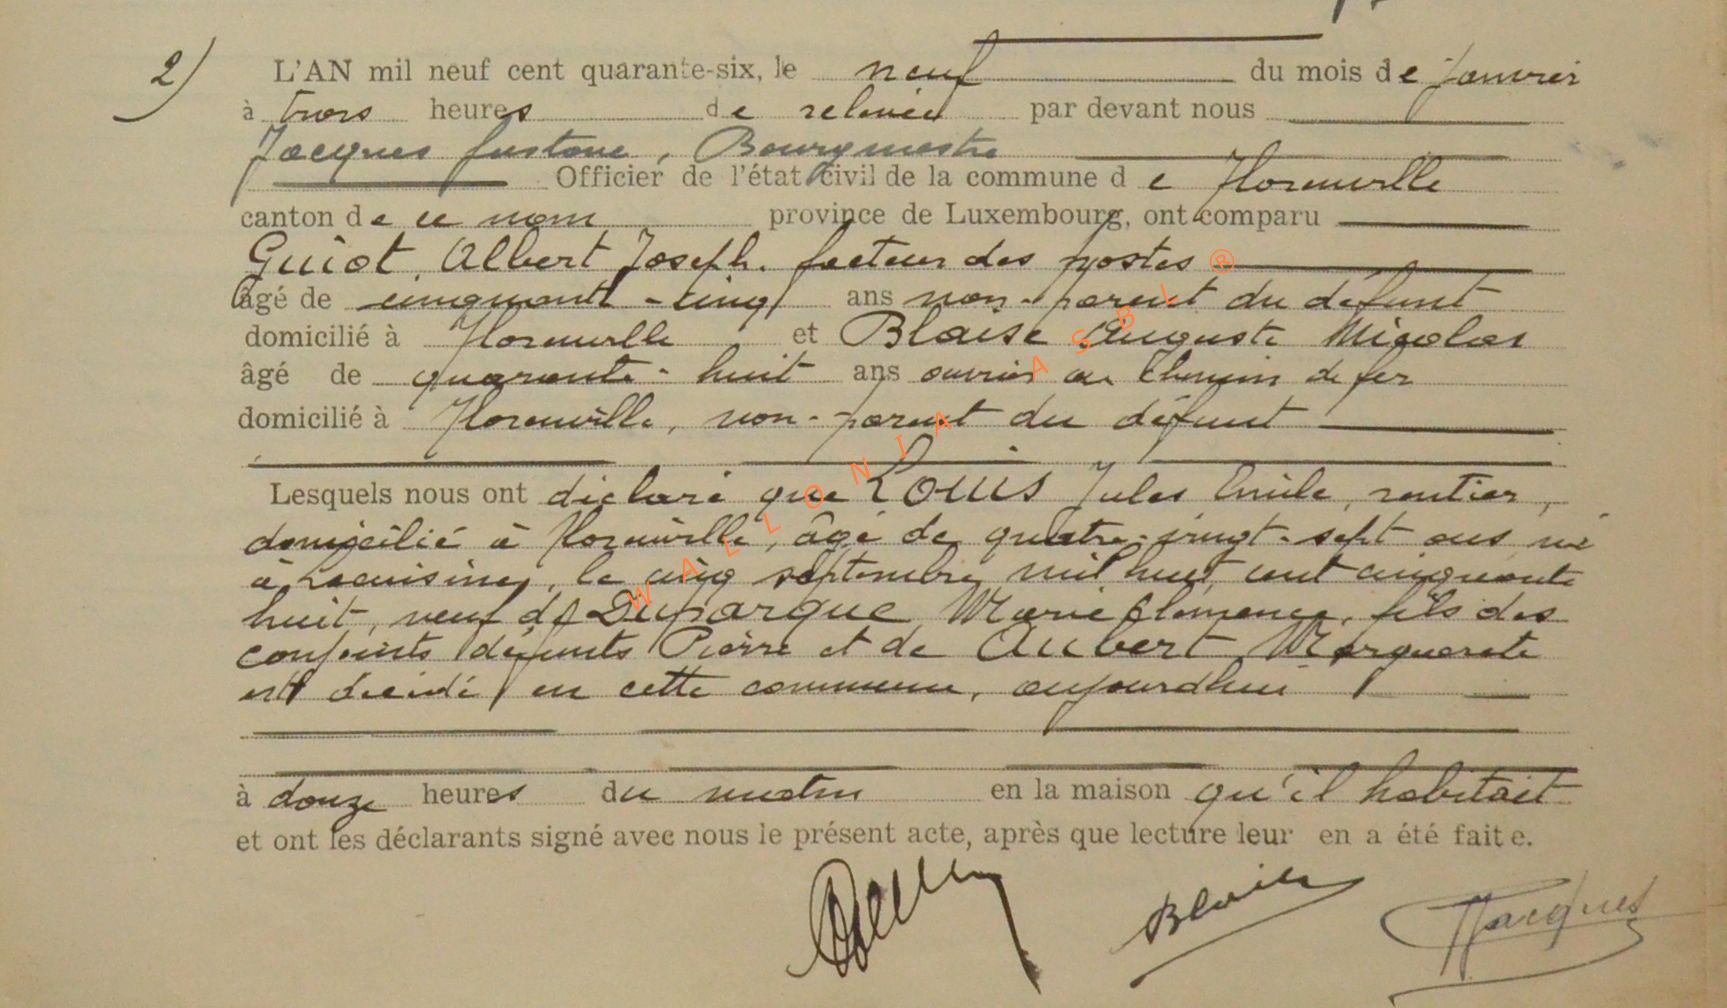 2) L'AN mil neuf cent quarante-six, le neuf du mois de janvier
à trois heures de relevée par devant nous
Jacques Gustave, Bourgmestre
Officier de l'état civil de la commune de Florenville
canton de ce nom province de Luxembourg, ont comparu
Guiot, Albert Joseph. facteur des postes
âgé de cinquante-cinq ans non-parent du défunt
domicilié à Florenville et Blaise Auguste Nicolas
âgé de quarante-huit ans ouvrier au chemin de fer
domicilié à Florenville, non-parent du défunt
Lesquels nous ont déclaré que Louis Jules Emile, rentier,
domicilié à Florenville, âgé de quatre-vingt-sept ans né
à Lacuisine, le cinq septembre mil huit cent cinquante
huit, veuf de Duparque Marie Clémence, fils des
conjoints défunts Pierre et de Aubert Marguerite
est décédé en cette commune, aujourdhui
à douze heures du matin en la maison qu'il habitait
et ont les déclarants signé avec nous le présent acte, après que lecture leur en a été faite.
Blaise Jacques
WALLONIA ASBL ®